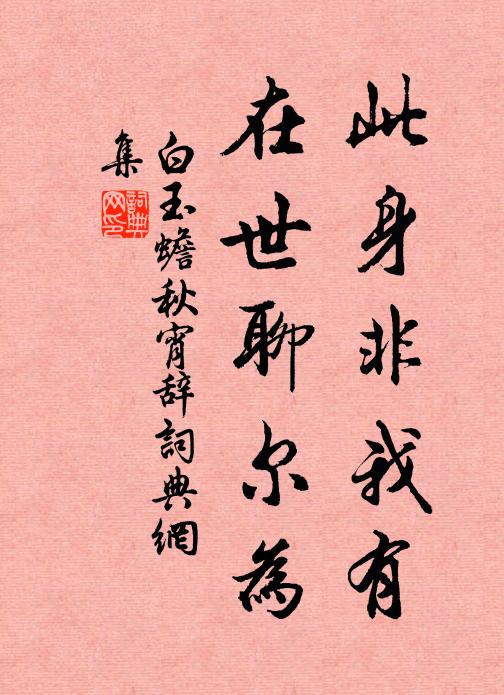 此身非我有
在世聊尔為
白玉蟾秋宵辞詞典網
集
詞典
网印